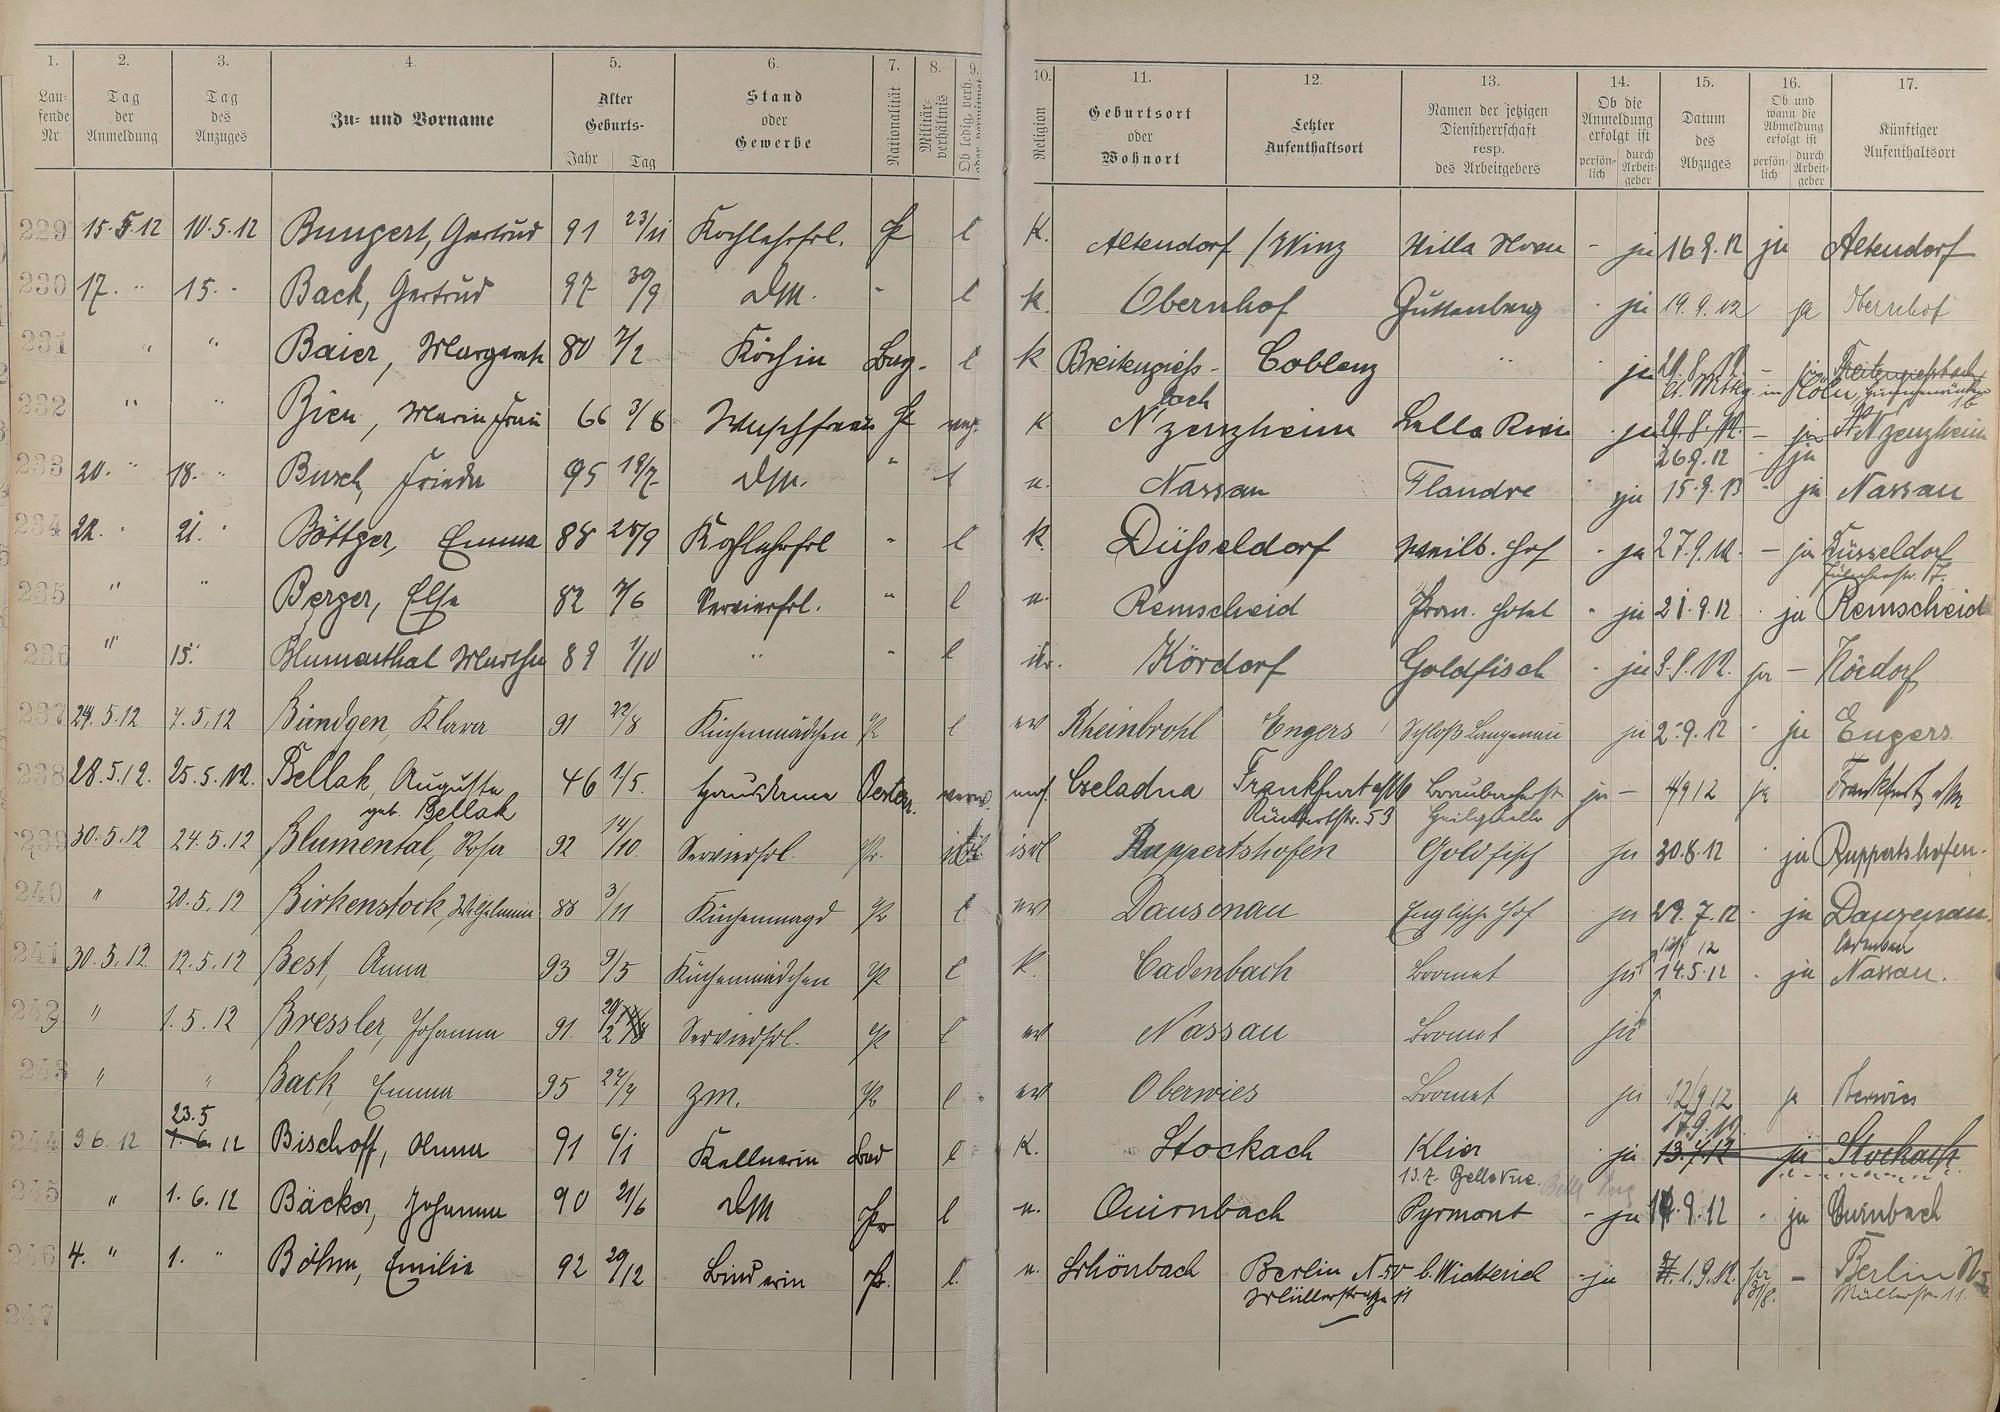 1. 2. 3. 4. 5. 6. 7. 8. 9. 10. 11. 12. 13. 14. 15. 16. 17.
Lau-
fende
Nr.
Tag
der
Anmeldung
Tag
des
Anzuges
Zu- und Vorname
Alter
Geburts-
Jahr Tag
Stand
oder
Gewerbe
Nationalität
Militär-
verhältnis
Ob ledig, verh.
Religion
Geburtsort
oder
Wohnort
Letzter
Aufenthaltsort
Namen der jetzigen
Dienstherrschaft
resp.
des Arbeitgebers
Ob die
Anmeldung
erfolgt ist
persön-
lich
durch
Arbeit-
geber
Datum
des
Abzuges
Ob und
wann die
Abmeldung
erfolgt ist
persön-
lich
durch
Arbeit-
geber
Künftiger
Aufenthaltsort
229 15.5.12 10.5.12 Bungert, Gertrud 91 23/11 Kochlehrfrl. Pr l K. Altendorf / Winz Villa - ja 16.9.12 ja Altendorf
230 17. " 15. " Back, Gertrud 97 30/9 DM. " l k. Obernhof Guttenberg - ja 19.9.12 ja Obernhof
231 " " Baier, Margarete 80 7/2 Köchin Bay. l k Breitengieß- Coblenz " ja
bach in Cöln
232 " " Bien, Maria Frau 66 3/8 Waschfrau Pr K Nzenzheim Lella ja 29.8.12. - ja Nzenzheim
26.9.12 ja
233 20. " 18. " Busch, Frieda 95 18/7 DM. " l Nassau Flandre ja 15.9.13 - ja Nassau
234 22. " 21. " Böttger, Emma 88 28/9 Kochlehrfrl " l k. Düsseldorf Weilb. Hof - ja 27.9.12. - ja Düsseldorf
235 " " Berger, Else 82 7/6 Servierfrl. " l Remscheid Prom. Hotel " ja 21.9.12 ja Remscheid
236 " 15. " Blumenthal Martha 89 1/10 " " l Kördorf Goldfisch - ja 3.9.12. ja - Kördorf
237 24.5.12 7.5.12 Bündgen, Klara 91 22/8 Küchenmädchen Pr l ev Rheinbrohl Engers Schloß Langenau ja 2.9.12 - ja Engers
238 28.5.12. 25.5.12. Bellak, Auguste 46 1/5. Hausdame Oester. Czeladna Frankfurt a/M Braubacherstr. ja - 4/9 12 ja Frankfurt a/M
geb. Bellak Rückertstr. 53 Heilquelle
239 30.5.12 24.5.12 Blumental, Rosa 92 14/10. Servierfrl. Pr. isrl Ruppertshofen Goldfisch ja 30.8.12 ja Ruppertshofen.
240 " 20.5.12 Birkenstock, Wilhelmine 88 3/11 Küchenmagd Pr l ev Dausenau Englische Hof ja 29.7.12 - ja Dausenau.
241 30.5.12. 12.5.12 Best, Anna 93 9/5 Küchenmädchen Pr l K. Cadenbach Bromet ja 14.5.12 ja Nassau.
242 " 1.5.12 Bressler, Johanna 91. Servierfrl. Pr l ev Nassau Bromet ja
243 " " Back, Emma 95 22/7 Zm. Pr l ev Oberwies Bromet ja 12/9 12 ja Oberwies
23.5 17.9.12.
244 3 6. 12 1. 6. 12 Bischoff, Anna 91 6/1 Kellnerin Bad l K. Stockach Klier ja 13.7.12 ja Stockach
13.7. Bellevue.
245 " 1.6.12 Bäcker, Johanna 90 21/6 DM Pr l Quirnbach Pyrmont - ja 14.9.12 - ja Quirnbach
246 4. " 1. " Böhm, Emilie 92 29/12 Pr. l. Schönbach Berlin b. Wichterich - ja 1.9.12. ja - Berlin
Müllerstraße 11 31/8. Müllerstr. 11.
247